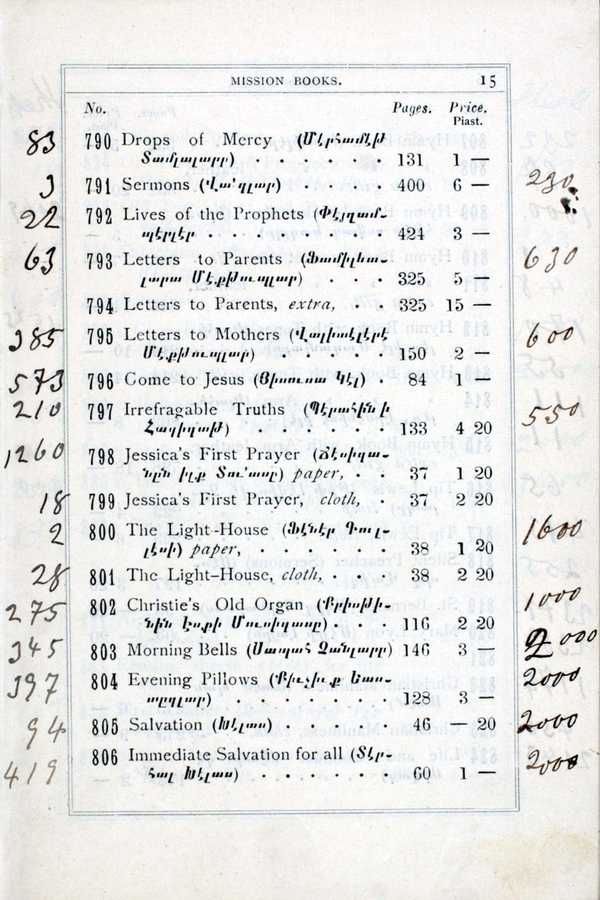 MISSION BOOKS. 15
No. Pages. Price.
Piast.
83 790 Drops of Mercy
131 1 —
3 791 Sermons (Վա՛զլար) 400 6 — 230
22 792 Lives of the Prophets (Փէյղամ-
պէրլէր 424 3 —
63 793 Letters to Parents 630
325 5 —
794 Letters to Parents, extra, 325 15 —
385 795 Letters to Mothers 600
150 2 —
573 796 Come to Jesus (Յիսուսա Կէլ) 84 1 —
210 797 Irrefragable Truths 550
133 4 20
1260 798 Jessica's First Prayer (Ճէսիքա-
նըն իլք Տուʼասը) paper, 37 1 20
18 799 Jessica's First Prayer, cloth, 37 2 20
2 800 The Light-House (Ֆէնէր Գուլ- 1600
լէսի) paper, 38 1 20
28 801 The Light-House, cloth, 38 2 20
275 802 Christie's Old Organ (Քրիսթի- 1000
նին 116 2 20
345 803 Morning Bells (Սապահ Չանլարը) 146 3 — 2000
397 804 Evening Pillows 2000
128 3 —
94 805 Salvation (Խէլաս) 46 — 20 2000
419 806 Immediate Salvation for all (Տէր- 2000
հալ Խէլաս) 60 1 —